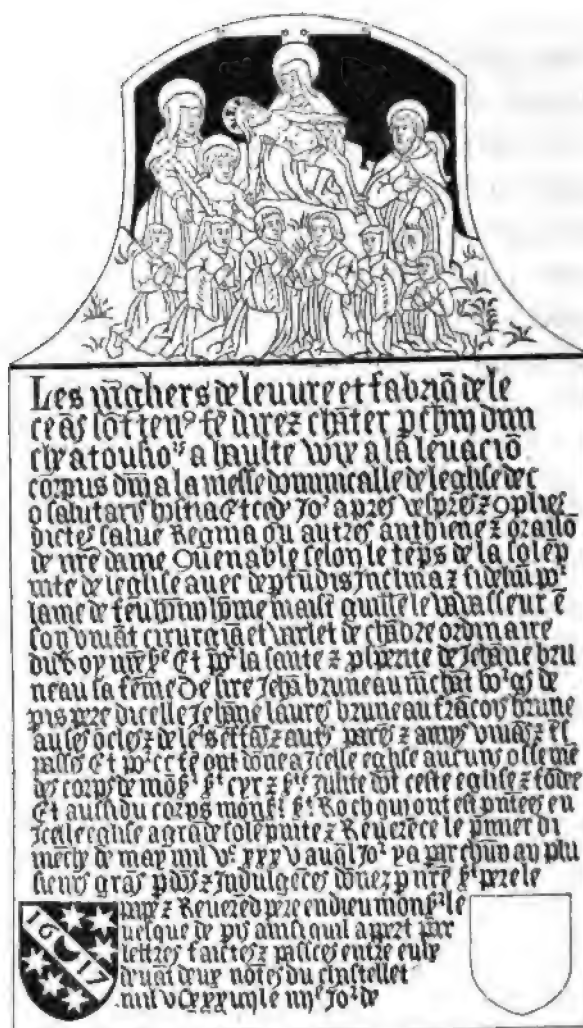 Les m̃gliers de leuure et fabriq̃ de le
ceãs sõt ten⁹ fẽ dire z chãter p chũn dim̃
che a tousio⁹ˢ a haulte voix a la leuaciõ
corpus dñi a la messe dominicalle de leglise de c
o salutaris hostia Et ced' Jo² apres vespres z 9plies
dictes salue Regina ou autres anthiene z oraisõ
de nr̃e dame 9uenable selon le tẽps de la solẽp
nite de leglise auec de p̃fũdis Inclina z fideliũ po²
lame de feu hõm maist guille le vauasseur ẽ
son viuãt cirurgiẽ et varlet de chãbre ordinaire
du Roy nr̃e sᵉ Et po² la sante z p̃sperite de Jehãne bru
neau sa fẽme De sire Jehã bruneau m̃chãt bo²gs de
p̃is pere dicelle Jehãne laures bruneau frãcoys brune
au ses õcles z de le²s z autˢ parẽs z amys viuãs z
passes Et po² ce fẽ ont dõne a icelle eglise aucuns osseme
des corps de mõsˡ sᵗ cyr z sᵗᵉ Julite dõt ceste eglise ẽ fõdee
Et aussi du corps monsˡ sᵗ Roch qui ont este p̃ntees en
Icelle eglise a grã de solẽpnite z Reuerẽce le p̃mier di
mẽche de may mil vᶜ xxx v auq̃l Jo² ya par chũn an plu
sieurs grãs p̃dõs z Indulgẽces dõnez p nr̃e sᵗ pere le
pape z Reuerẽd pere en dieu monsˡ le
uesque de p̃is ainsi quil apert par
lettres faictes z passees entre eulx
deuãt deux notˢ du chastellet
mil vᶜ xxx le Jo² de
1617